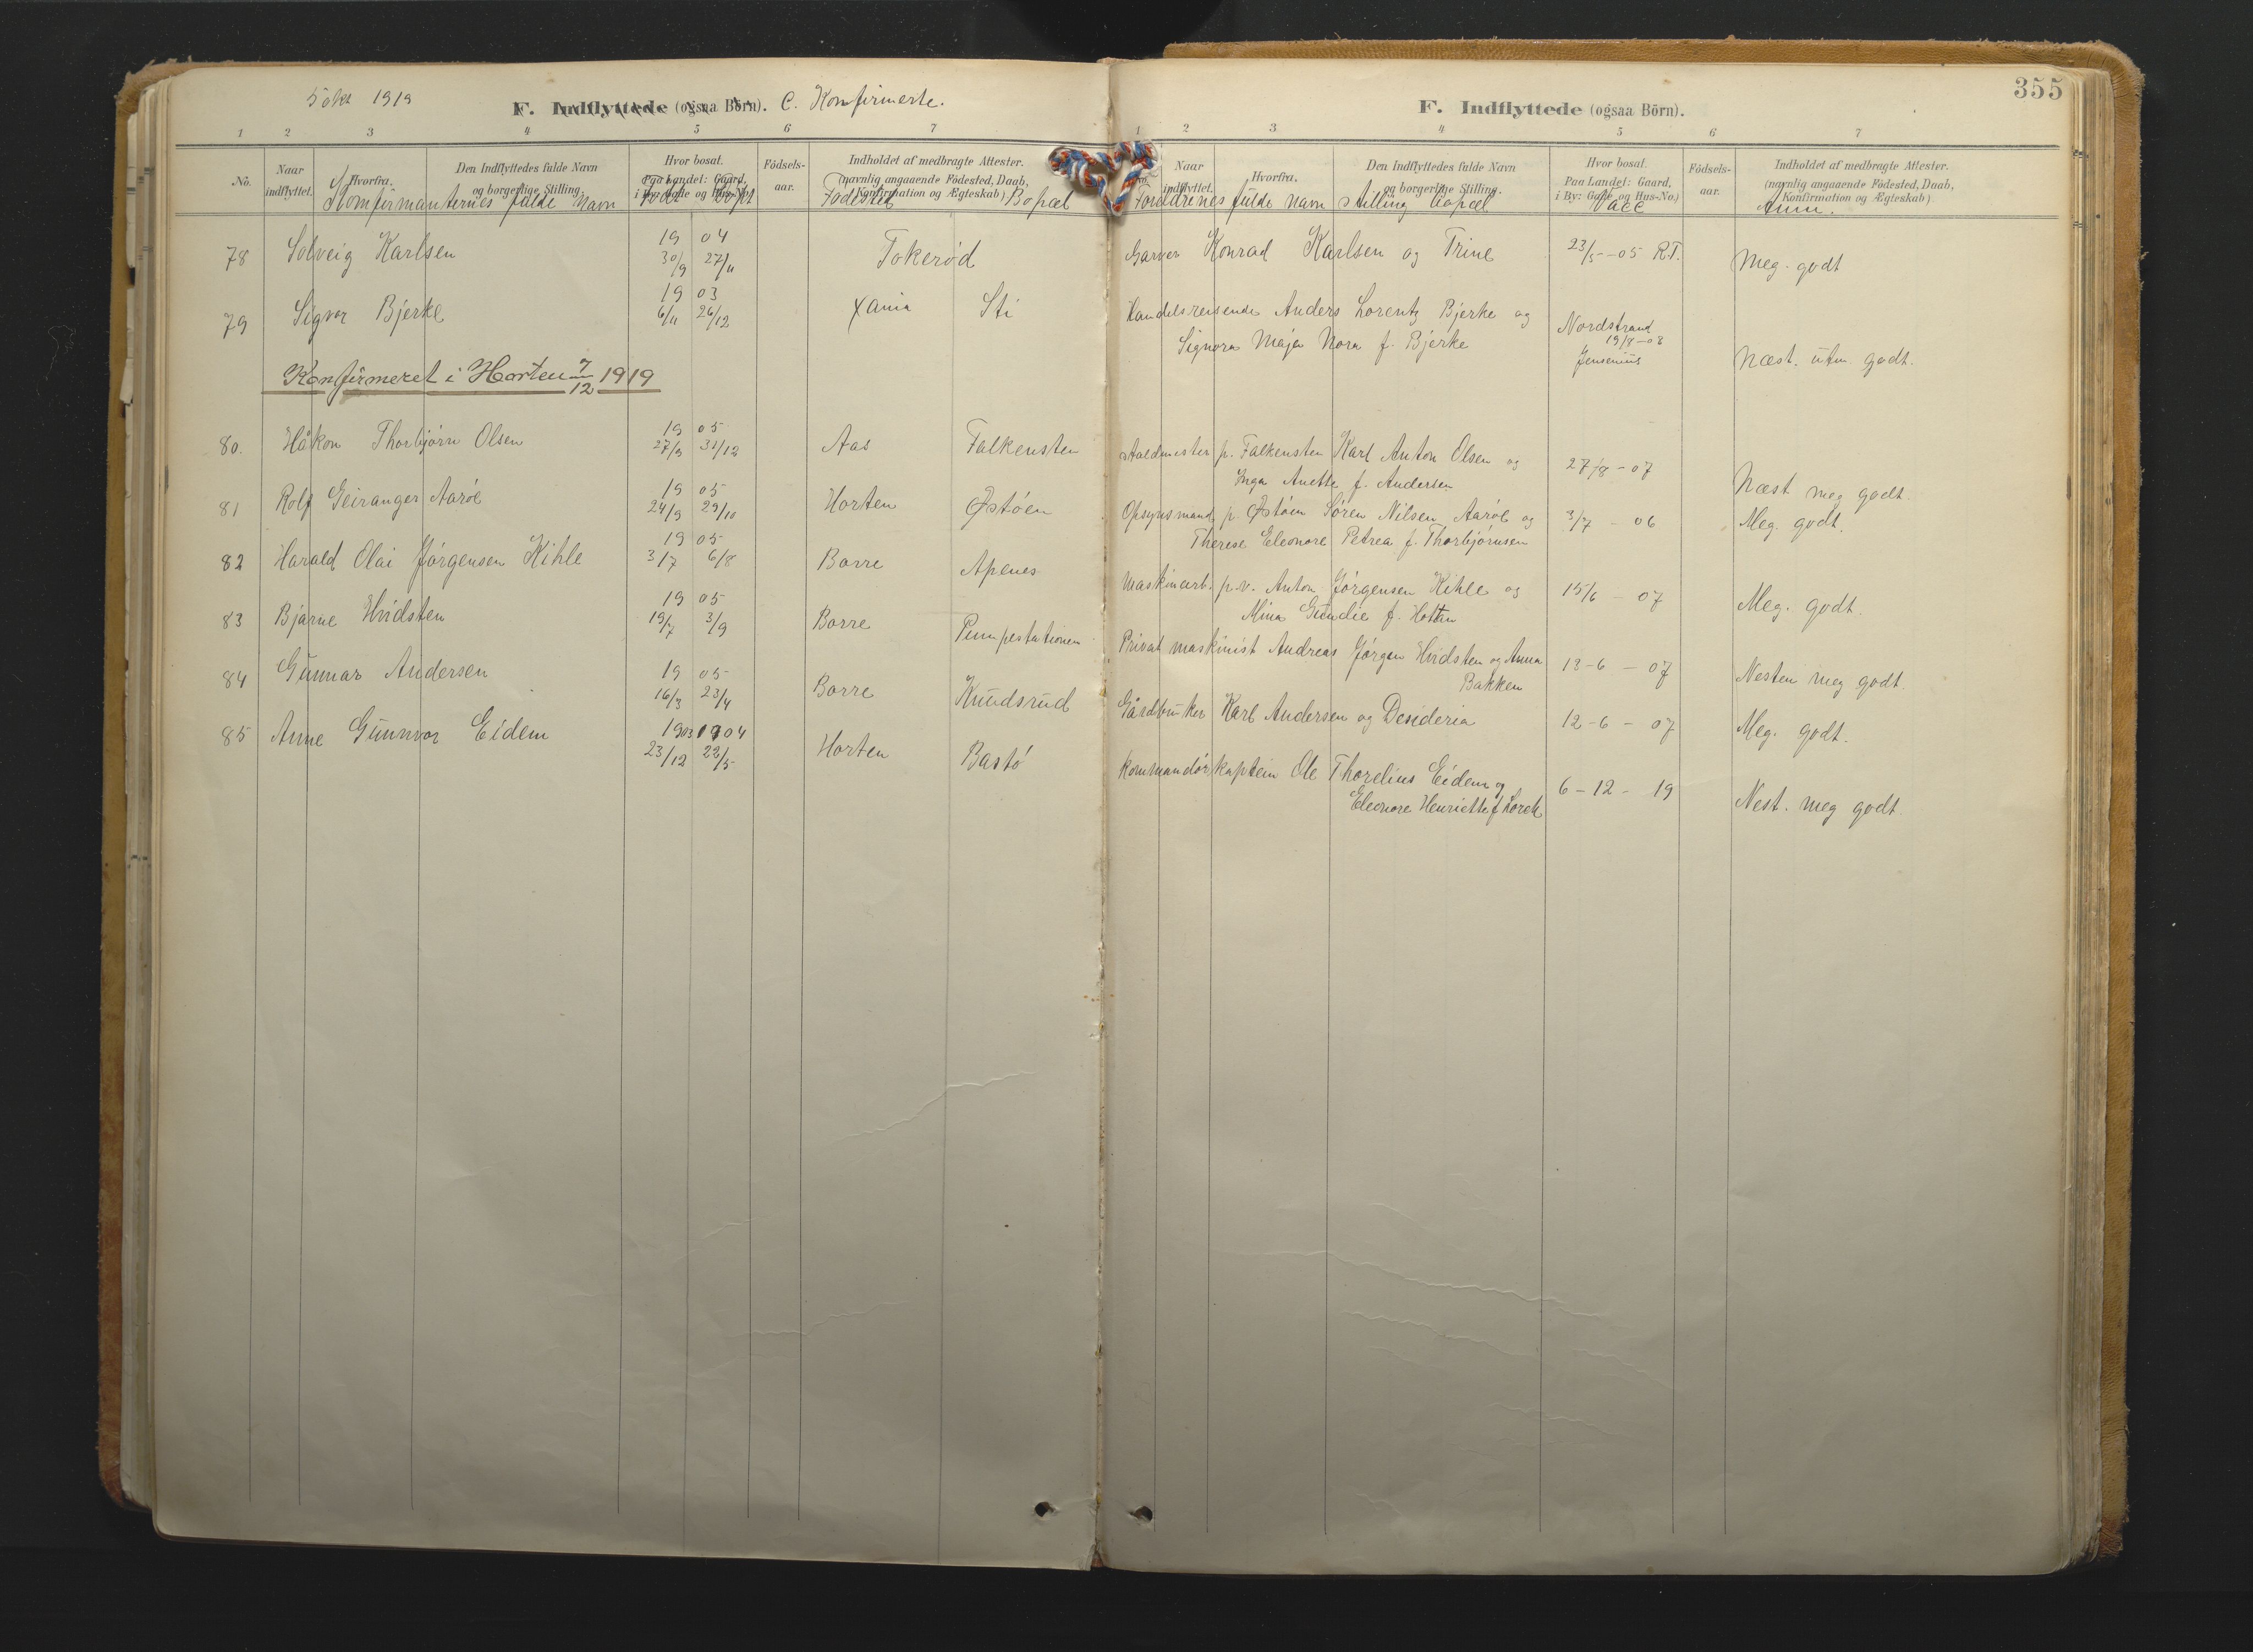 355
5 okt 1919
F. Indflyttede (ogsaa Börn). C. Konfirmerte.
1 2 3 4 5 6 7
No. Naar indflyttet. Hvorfra. Den Indflyttedes fulde Navn og borgerlige Stilling. Hvor bosat. Paa Landet: Gaard, i By: Gade og Hus-No. Födsels-aar. Indholdet af medbragte Attester. (navnlig angaaende Födested, Daab, Konfirmation og Ægteskab)
Konfirmanternes fulde Navn Født Døpt Fødested Bopæl
78 Solveig Karlsen 1904 30/9 27/11 Tokerød
79 Sigvor Bjerke 1903 6/11 26/12 Xania Sti
Konfirmeret i Horten 7/12 1919
80. Håkon Thorbjørn Olsen 1905 27/9 31/12 Aas Falkensten
81 Rolf Geiranger Aarøe 1905 24/9 29/10 Horten Østøen
82 Harald Olai Jørgensen Kihle 1905 3/7 6/8 Borre Apenes
83 Bjarne Hvidsten 1905 19/7 3/9 Borre Pumpestationen
84 Gunnar Andersen 1905 16/3 23/4 Borre Knudsrud
85 Anne Gunnvor Eidem 1903 1904 23/12 22/5 Horten Bastø
F. Indflyttede (ogsaa Börn).
1 2 3 4 5 6 7
No. Naar indflyttet. Hvorfra. Den Indflyttedes fulde Navn og borgerlige Stilling. Hvor bosat. Paa Landet: Gaard, i By: Gade og Hus-No.) Födsels-aar. Indholdet af medbragte Attester. (navnlig angaaende Födested, Daab, Konfirmation og Ægteskab)
Forældrenes fulde navn stilling bopæl Vacc Anm.
Garver Konrad Karlsen og Trine 23/5-05 R.T. Meg. godt
Handelsreisende Anders Lorentz Bjerke og Nordstrand
Signora Maja Nora f. Bjerke 19/8-08 Jensenius Næst. utm. godt.
Staldmester p. Falkensten Karl Anton Olsen og 27/8-07
Inga Anette f. Andersen Næst meg godt.
Opsynsmand p. Østøen Søren Nilsen Aarøe og 3/7 - 06 Meg. godt.
Therese Eleonore Petrea f. Thorbjørnsen
Maskinarb. p.v. Anton Jørgensen Kihle og 15/6 - 07 Meg. godt.
Mina f. Hotten
Privat maskinist Andreas Jørgen Hvidsten og Anna 13-6 - 07 Nesten meg godt.
Bakken
Gårdbruker Karl Andersen og Desideria 12-6 - 07 Meg. godt.
Kommandørkaptein Ole Thorelius Eidem og 6-12-19 Nest. meg godt
Eleonore Henriette f. Lorck